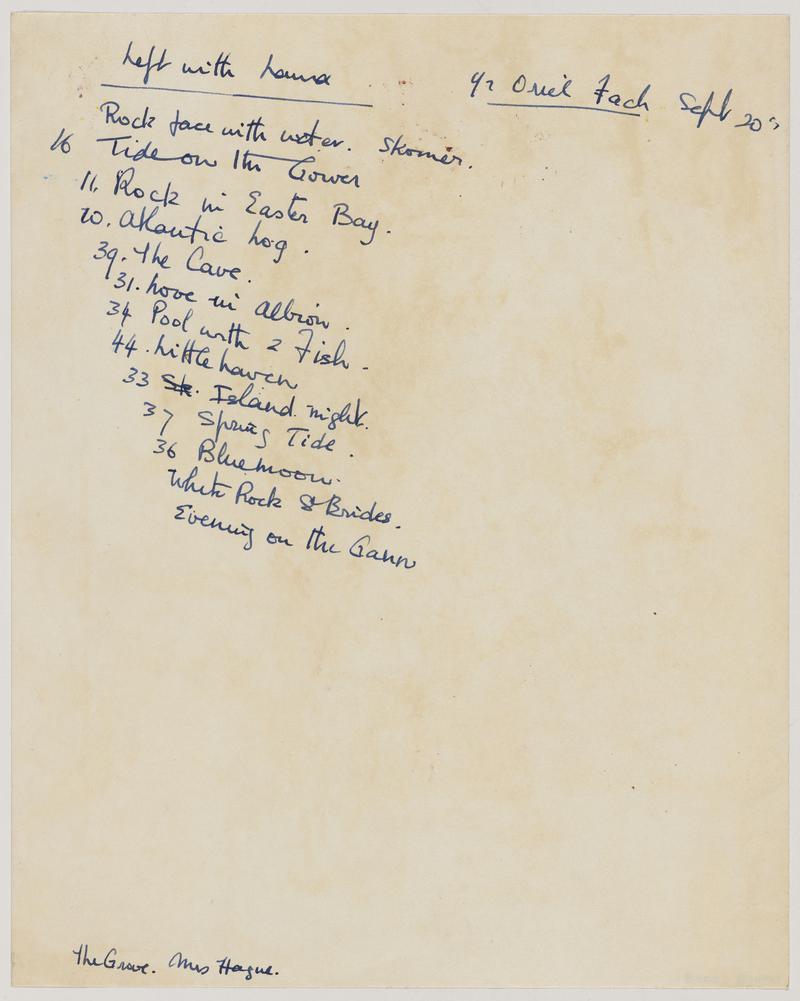 Left with Launa
Yr Oriel Fach Sept 20th
Rock face with water. Skomer.
16 Tide on the Gower
11. Rock in Easter Bay.
20. Atlantic Log.
39. The Cave.
31. Love in Albion.
34 Pool with 2 Fish -
44. Little haven
33 Sk. Island night.
37 Spring Tide.
36 Bluemoon.
White Rock St Brides.
Evening on the Gann
The Grove. Mrs Hague.